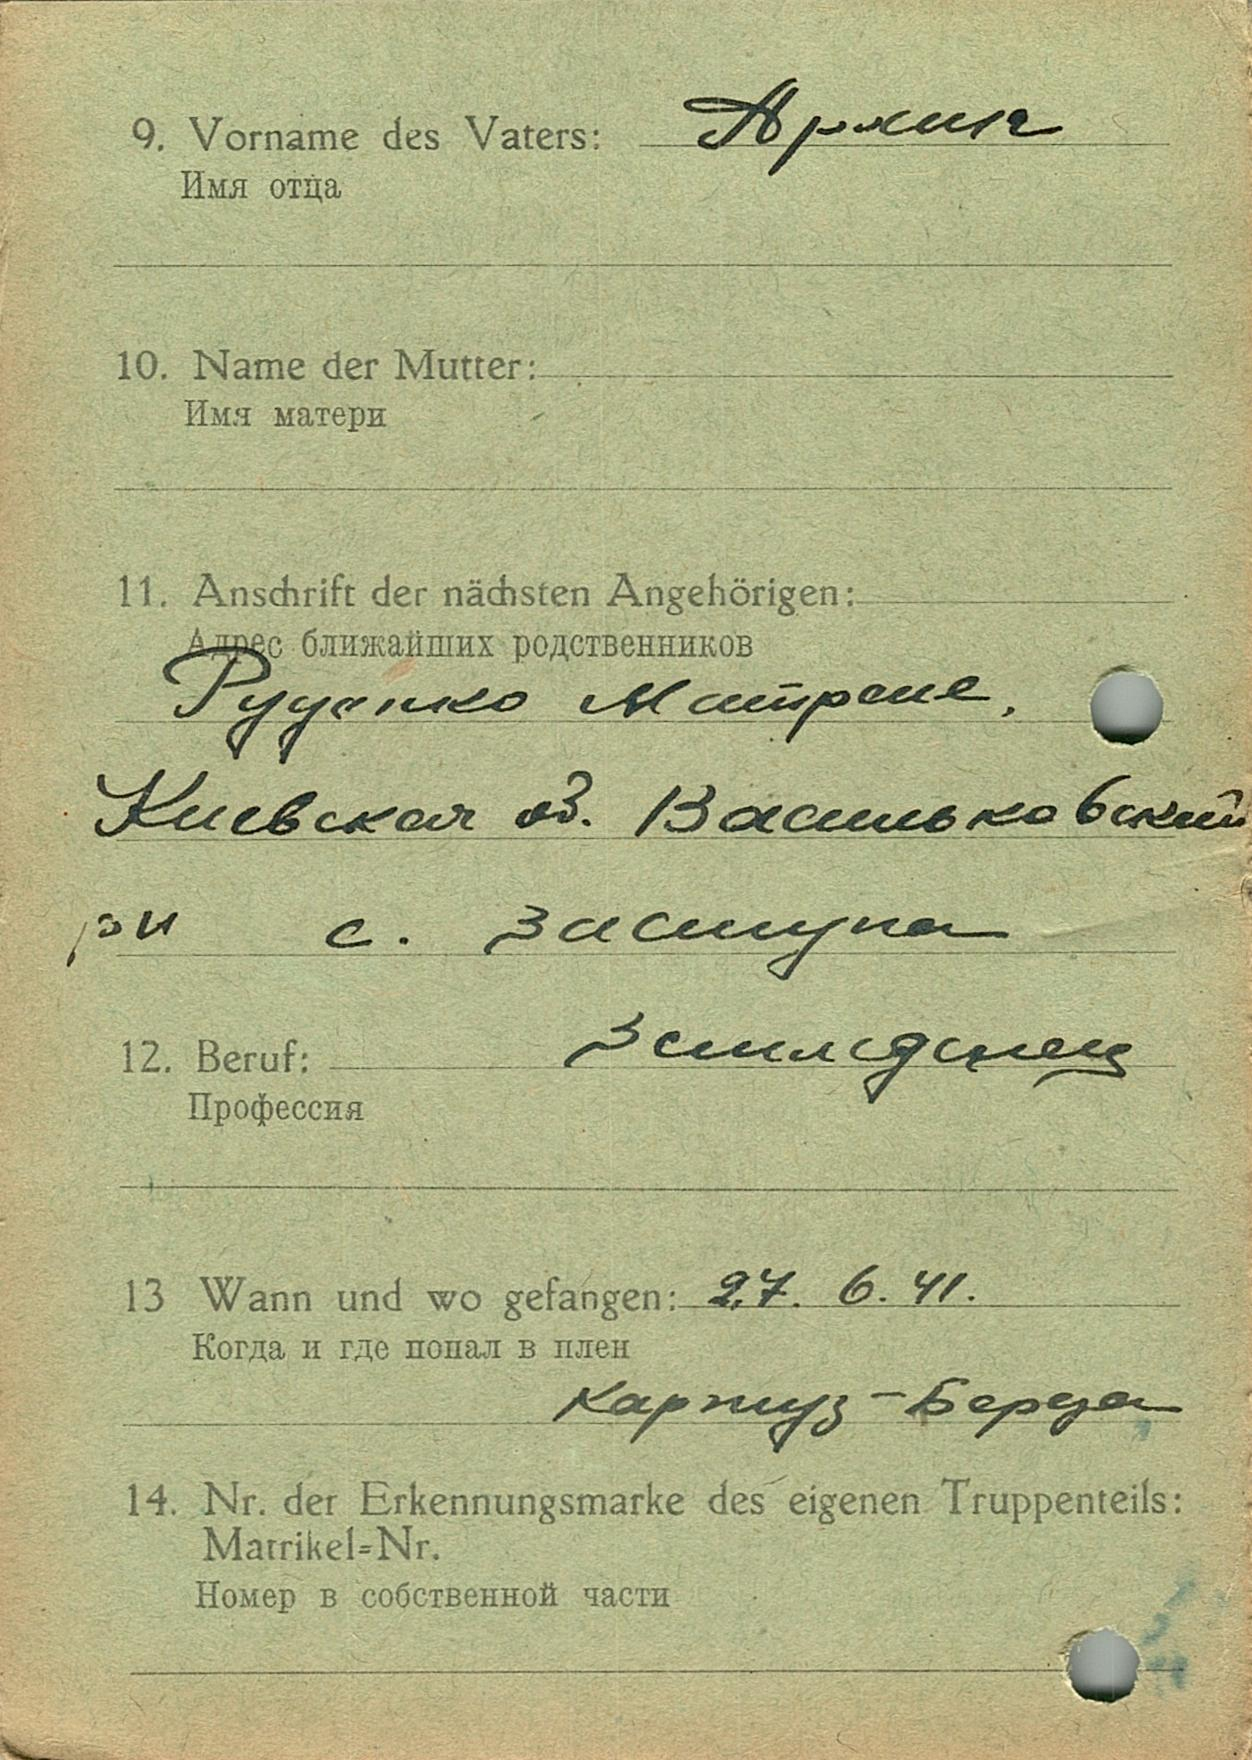 9. Vorname des Vaters: Архип
Имя отца
10. Name der Mutter:
Имя матери
11. Anschrift der nächsten Angehörigen:
Адрес ближайших родственников
Руденко Матрене,
Киевская об. Васильковский
рн с. Застуна
12. Beruf: Земледелец
Профессия
13 Wann und wo gefangen: 27. 6. 41.
Когда и где попал в плен
Картуз-Береза
14. Nr. der Erkennungsmarke des eigenen Truppenteils:
Matrikel=Nr.
Номер в собственной части